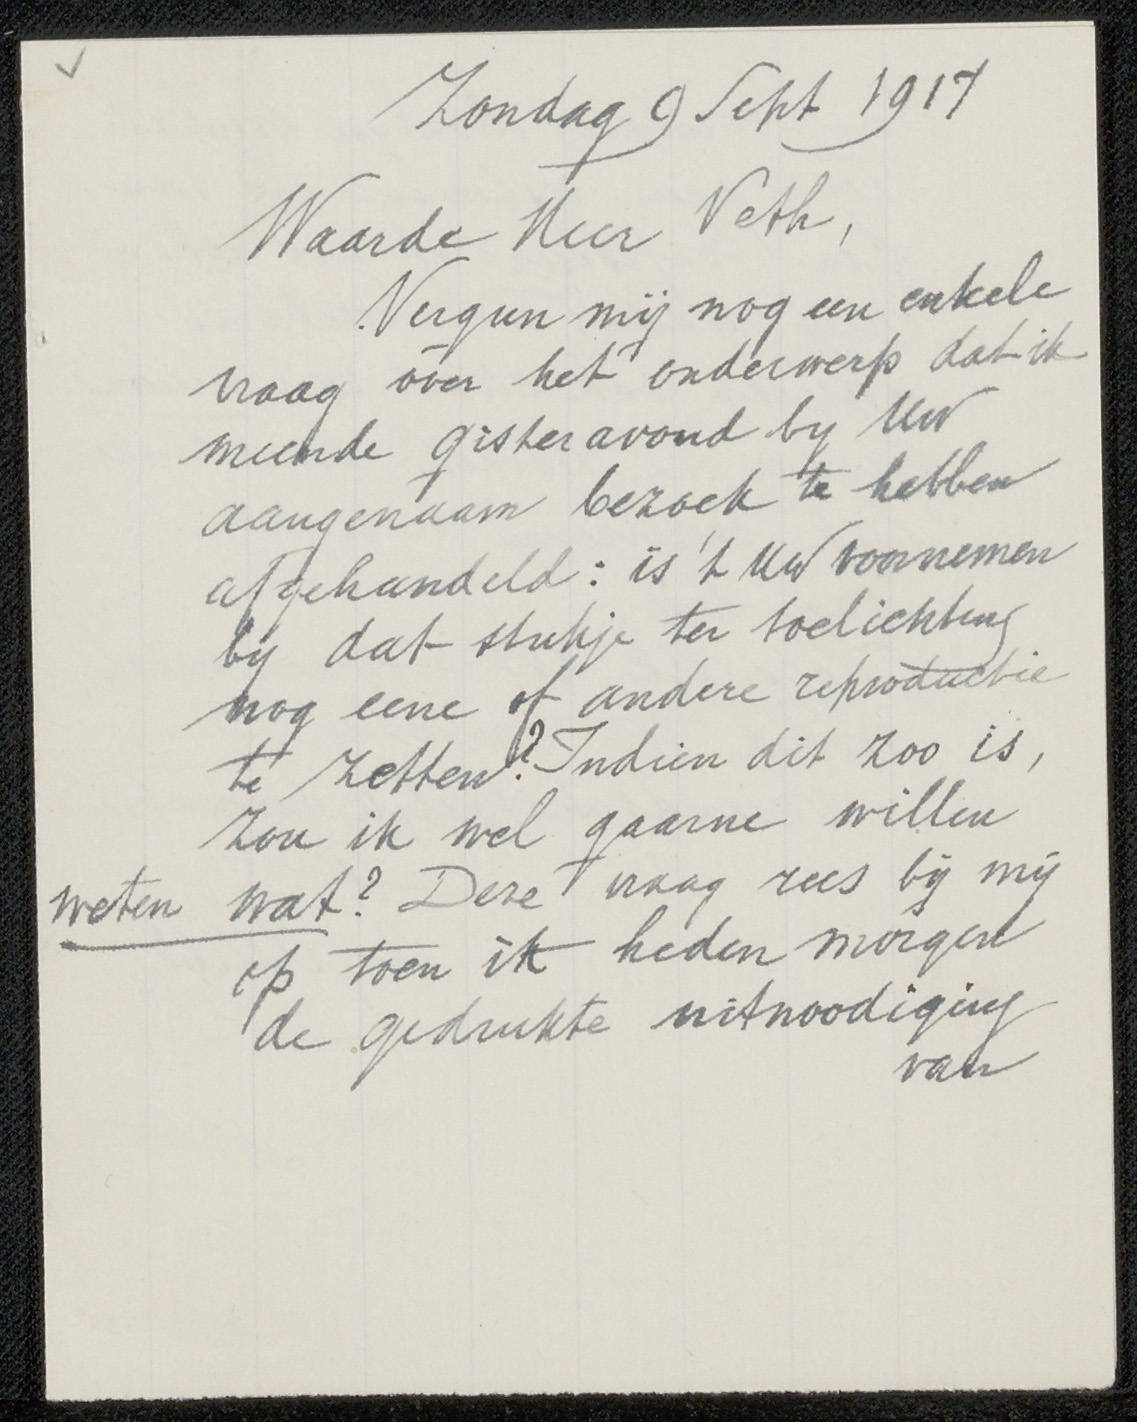 Zondag 9 Sept 1917
Waarde Heer Veth,
Vergun mij nog een enkele
vraag over het onderwerp dat ik
meende gisteravond by Uw
aangenaam bezoek te hebben
afgehandeld: is 't Uw voornemen
bij dat stukje ter toelichting
nog eene of andere reproductie
te zetten? Indien dit zoo is,
zou ik wel gaarne willen
weten wat? Deze vraag rees bij mij
op toen ik heden morgen
de gedrukte uitnoodiging
van